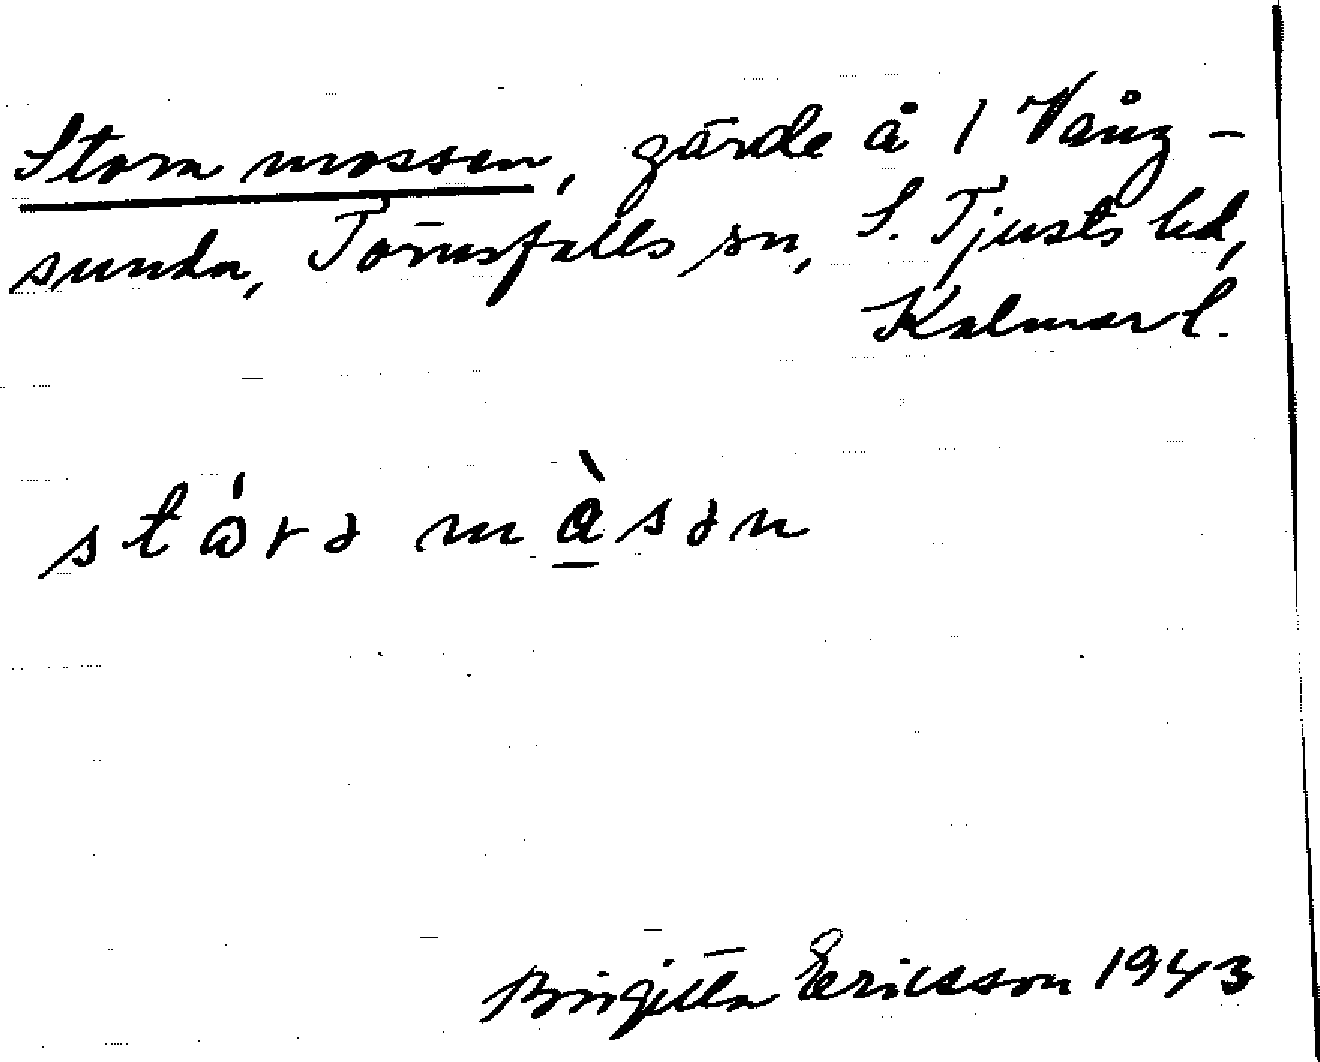 Stora mossen, gärde å 1 Vång-
sunda, Törnsfalls sn, S. Tjusts hd,
Kalmar l.
stɷ́rə må̀sən
Birgitta Ericsson 1943